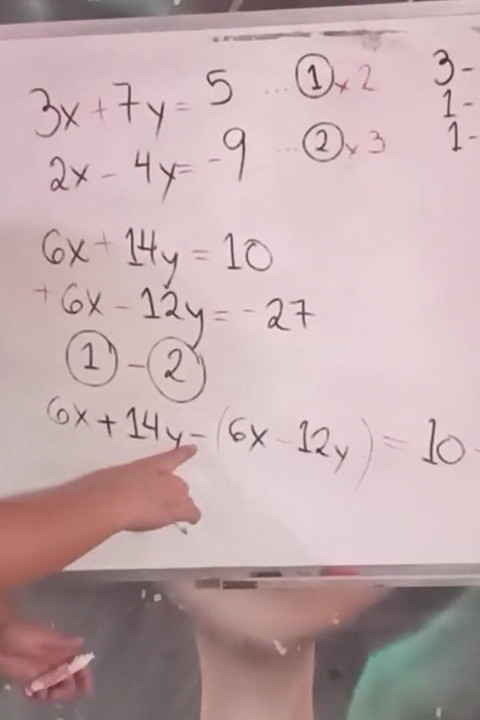 3x + 7y = 5 ... ① x 2
2x - 4y = -9 ... ② x 3
6x + 14y = 10
+6x - 12y = -27
① - ②
6x + 14y - (6x - 12y) = 10 -
3-
1-
1-